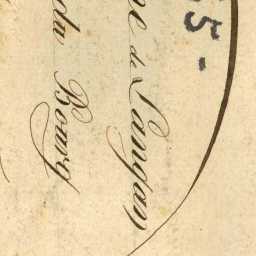 55-
e de Langan
du Bourg